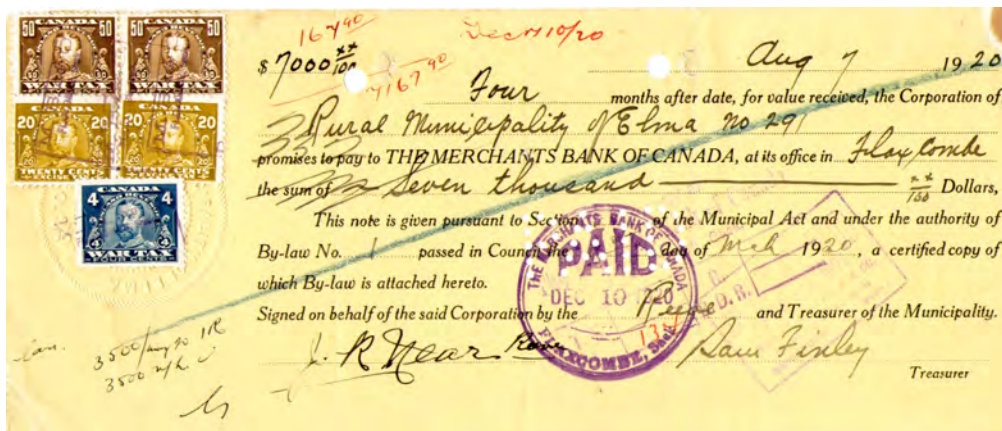 CANADA CANADA
50 50 50 50
WAR TAX WAR TAX
20 20 20 20
TWENTY CENTS TWENTY CENTS
CANADA
4 4
WAR TAX
FOUR CENTS
167 90
Dec 10/20
$ 7000 xx/100
7167 90
Aug 7 1920
Four months after date, for value received, the Corporation of
Rural Municipality of Elma no 291
promises to pay to THE MERCHANTS BANK OF CANADA, at its office in Flaxcombe
the sum of Seven thousand xx/100 Dollars,
This note is given pursuant to Section of the Municipal Act and under the authority of
By-law No. 1 passed in Council the day of Mch 1920, a certified copy of
which By-law is attached hereto.
Signed on behalf of the said Corporation by the Reeve and Treasurer of the Municipality.
J. R Near Reeve Sam Finley
Treasurer
THE MERCHANTS BANK OF CANADA
PAID
DEC 10 1920
FLAXCOMBE, Sask
3500
3500